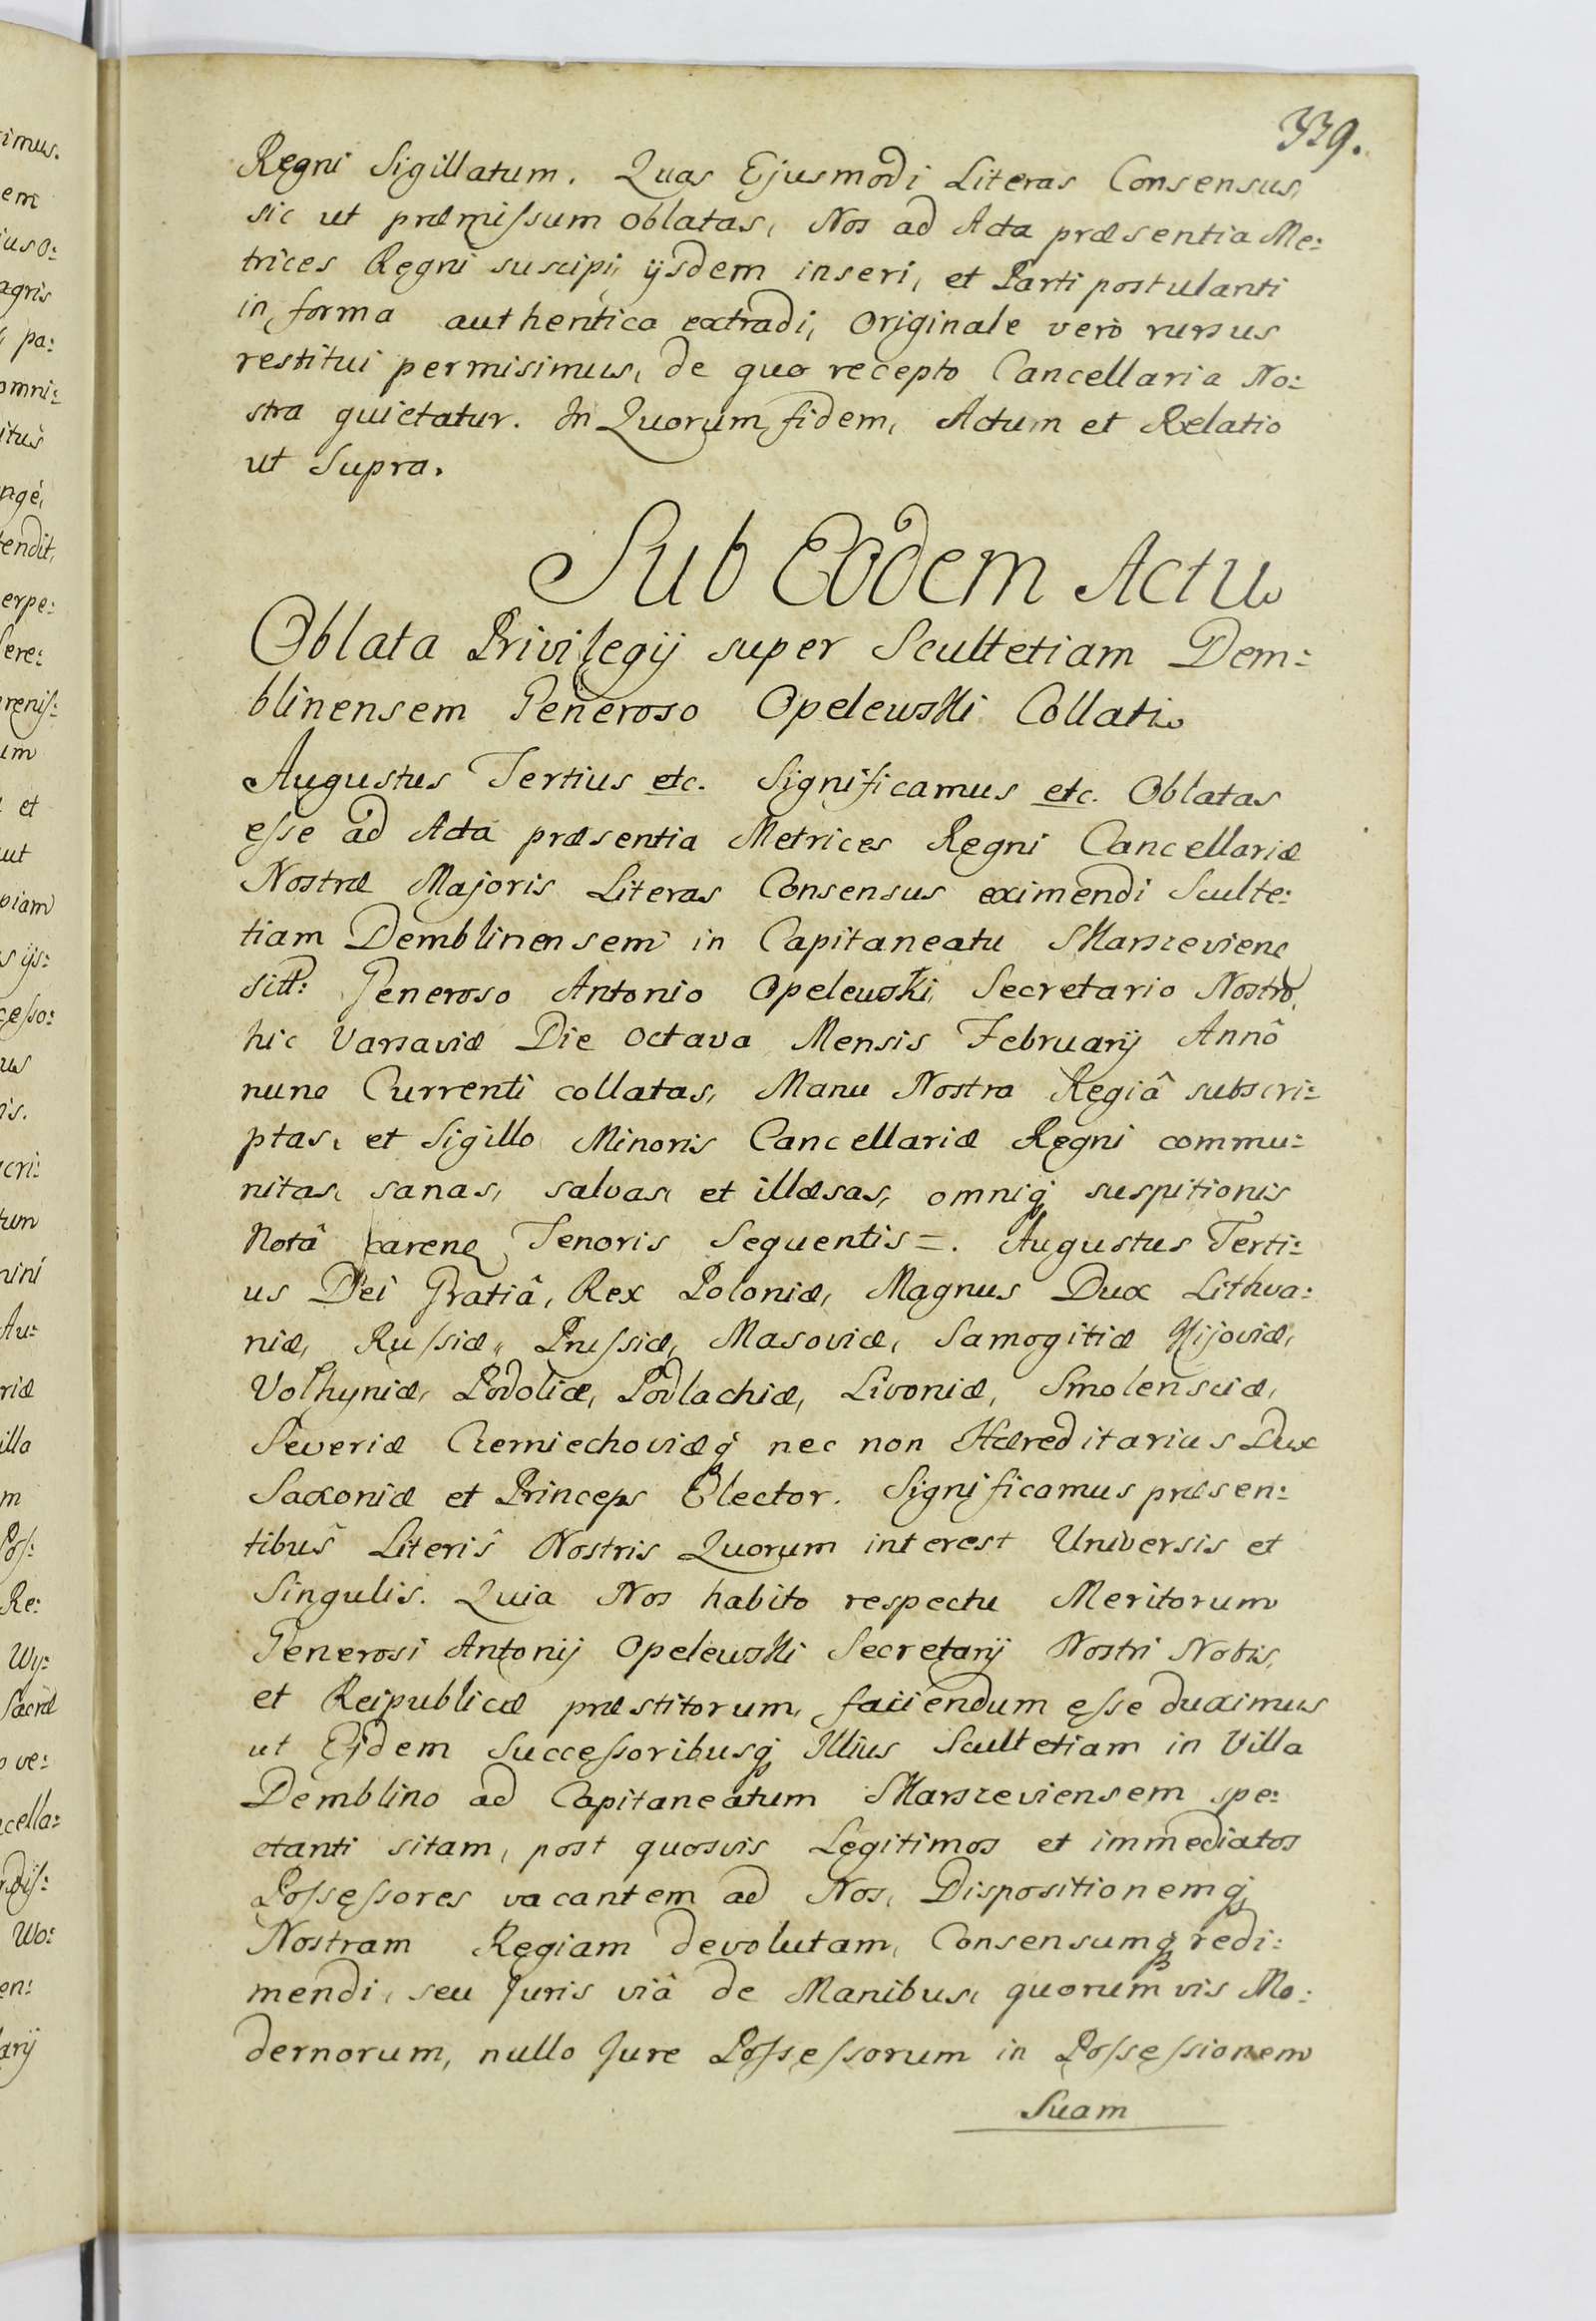 339.
Regni Sigillatum. Quas Ejusmodi Literas Consensus,
sic ut præmissum oblatas, Nos ad Acta præsentia Me:
trices Regni suscipi, ijsdem inseri, et Parti postulanti
in forma authentica extradi, Originale verò rursus
restitui permisimus, de quo recepto Cancellaria No:
stra quietatur. In Quorum fidem, Actum et Relatio
ut Supra.
Sub Eodem Actu
Oblata Privilegij super Scultetiam Dem:
blinensem Generoso Opelewski Collati
Augustus Tertius etc. Significamus etc. Oblatas
esse ad Acta præsentia Metrices Regni Cancellariæ
Nostræ Majoris Literas Consensus eximendi Sculte:
tiam Demblinensem in Capitaneatu Skarszeviens
sitt: Generoso Antonio Opelewski, Secretario Nostro,
hic Varsaviæ Die Octava Mensis Februarij Annô
nunc Currenti collatas, Manu Nostra Regiâ subscri:
ptas, et Sigillo Minoris Cancellariæ Regni commu:
nitas, sanas, salvas, et illæsas, omniq; suspitionis
Notâ carenes Tenoris Sequentis =. Augustus Terti:
us Dei Gratiâ, Rex Poloniæ, Magnus Dux Lithva:
niæ, Russiæ, Prussiæ, Masoviæ, Samogitiæ Kijoviæ,
Volhyniæ, Podoliæ, Podlachiæ, Livoniæ, Smolensciæ,
Severiæ Czerniechoviæq; nec non Hæreditarius Dux
Saxoniæ et Princeps Elector. Significamus præsen:
tibus Literis Nostris Quorum interest Universis et
Singulis. Quia Nos habito respectu Meritorum
Generosi Antonij Opelewski Secretarij Nostri Nobis,
et Reipublicæ præstitorum, faciendum esse duximus
ut Ejdem Successoribusq; Illius Scultetiam in Villa
Demblino ad Capitaneatum Skarszeviensem spe:
ctanti sitam, post quosvis Legitimos et immediatos
Possessores vacantem ad Nos, Dispositionemq;
Nostram Regiam devolutam, Consensumq; redi:
mendi, seu Juris viâ de Manibus, quorumvis Mo:
dernorum, nullo Jure Possessorum in Possessionem
Suam